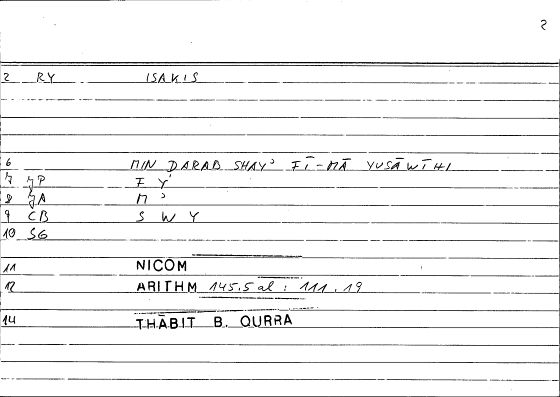 2
2 RY ISAKIS
6 MIN DARAB SHAY' FĪ-MĀ YUSĀWĪHI
7 JP F Y
8 JA M '
9 CB S W Y
10 SG
11 NICOM
12 ARITHM 145.5 al : 111.19
14 THĀBIT B. QURRA